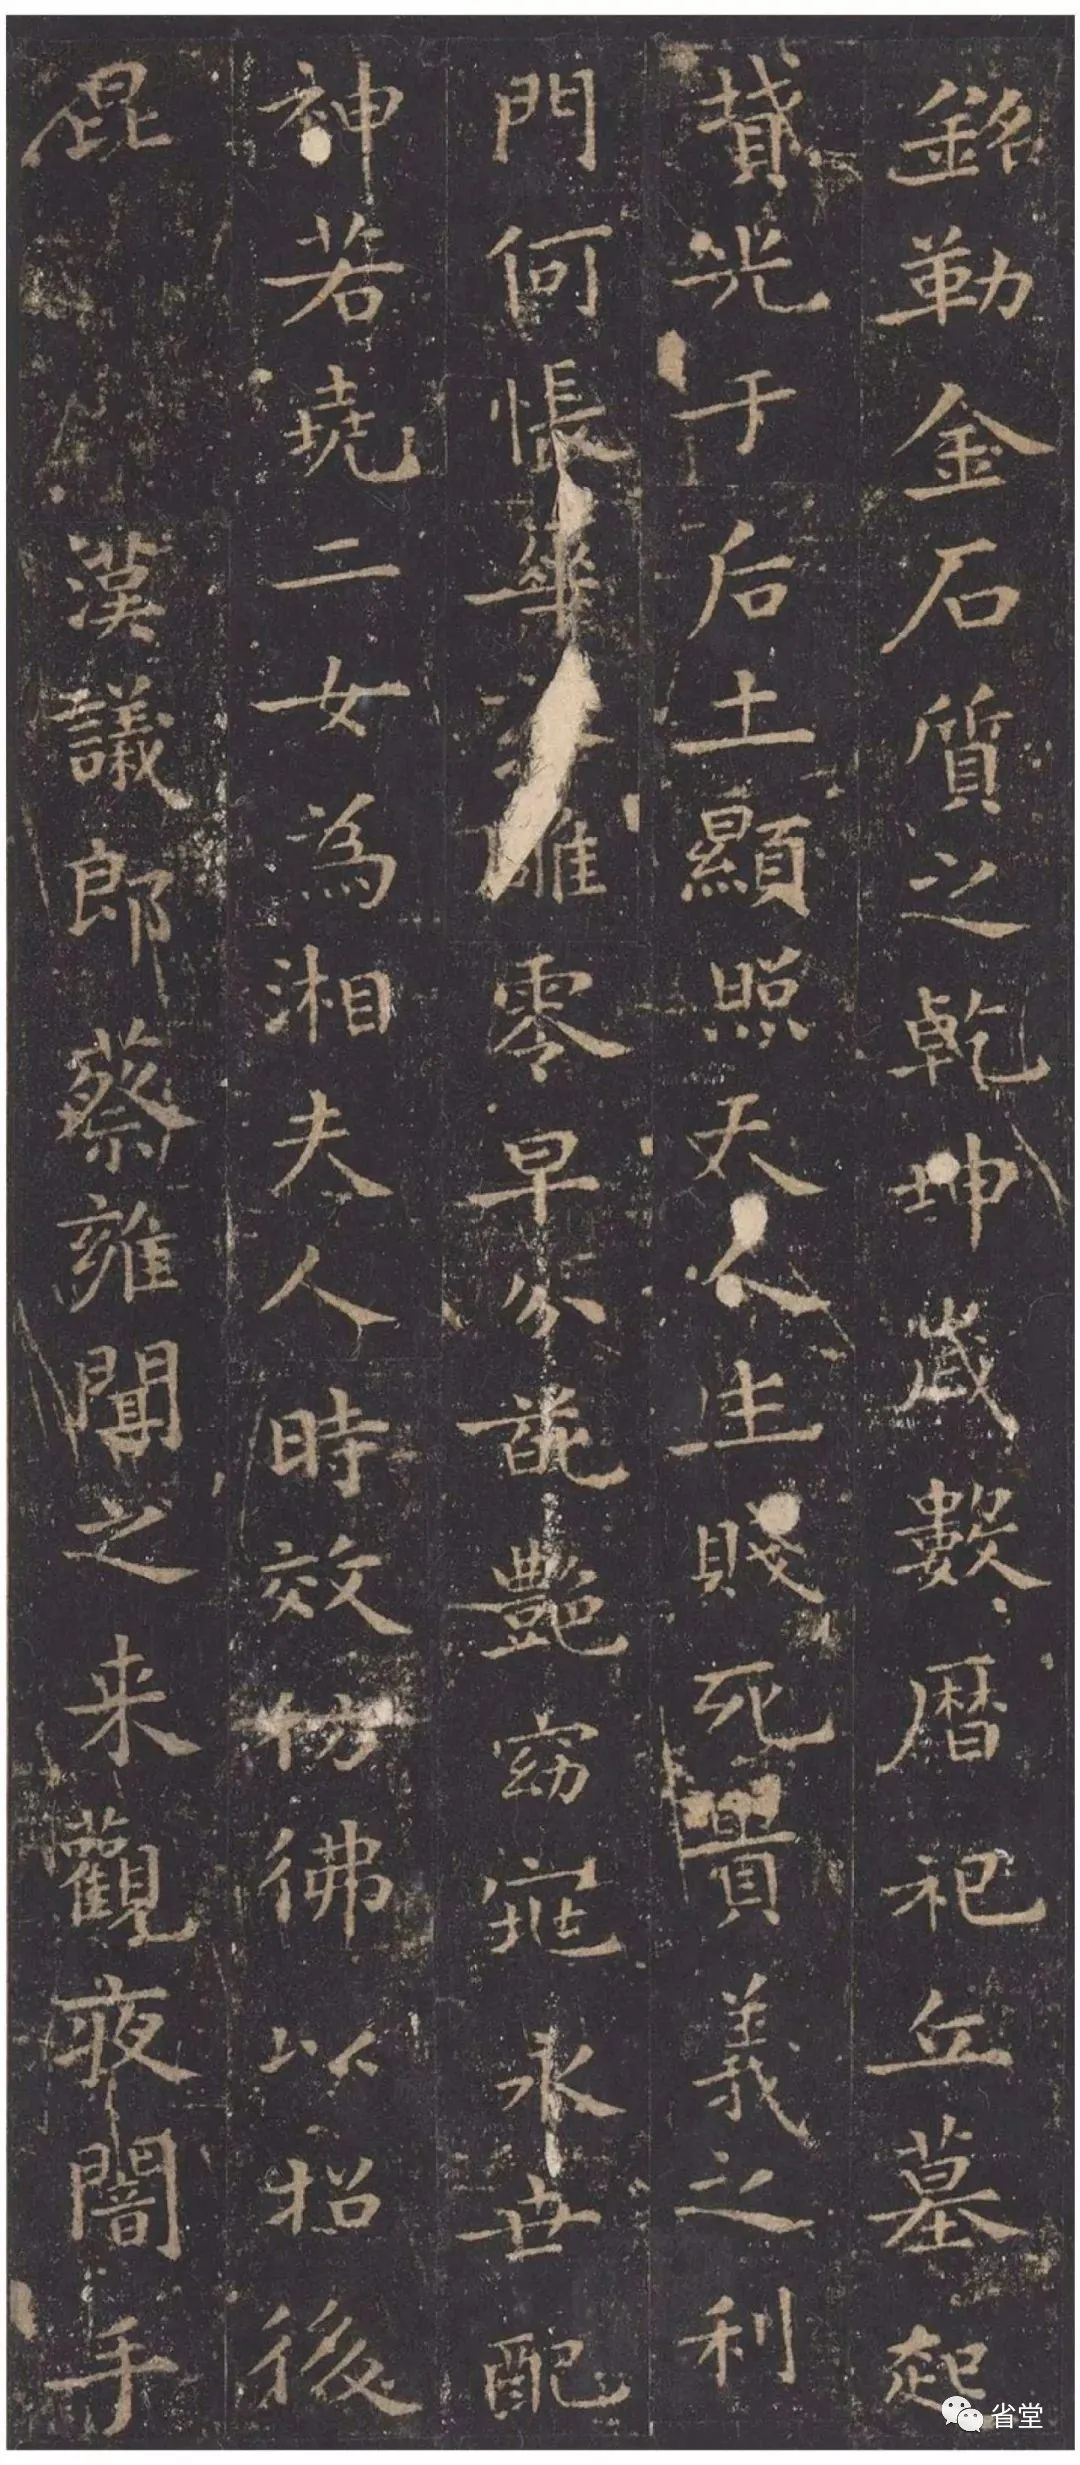 銘勒金石質之乾坤歲數曆祀丘墓起
賁光于后土顯照天人生賤死貴義之利
門何悵華落雕零早分葩艷窈窕永世配
神若堯二女為湘夫人時效仿彿以招後
昆 漢議郎蔡雍聞之来觀夜闇手
省堂